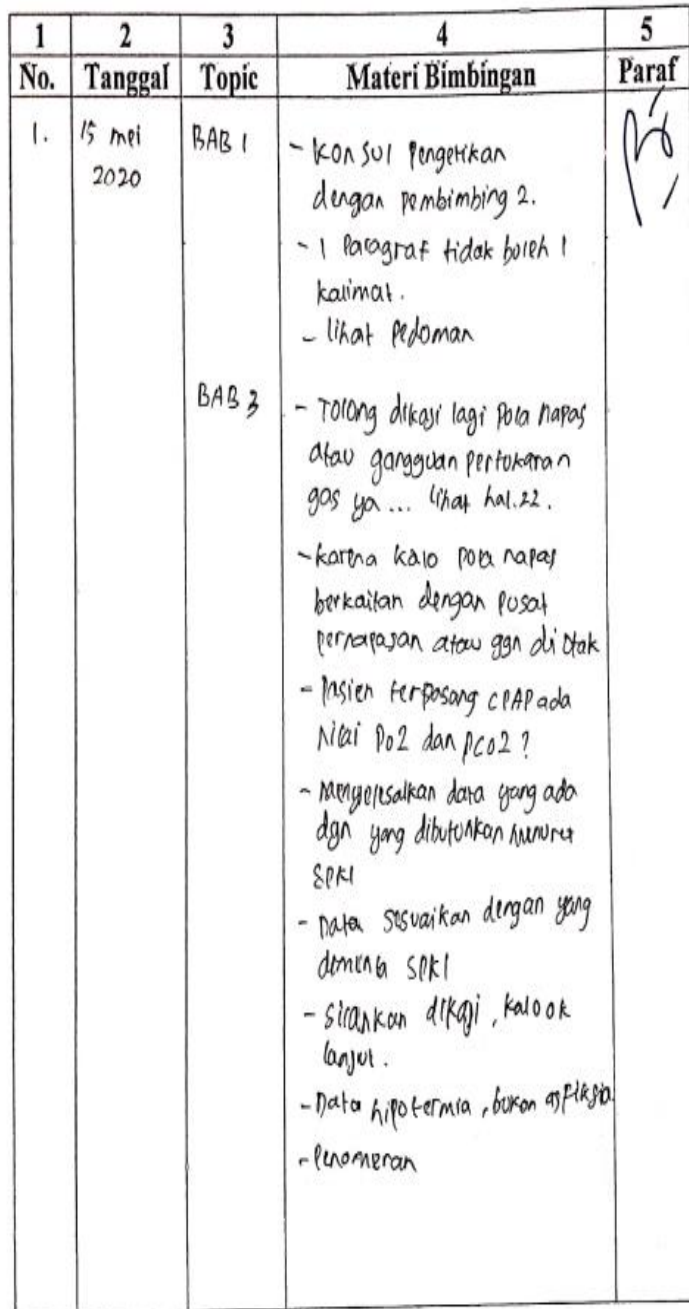 1 2 3 4 5
No. Tanggal Topic Materi Bimbingan Paraf
1. 15 mei BAB 1 - Konsul Pengetikan
2020 dengan pembimbing 2.
- 1 Paragraf tidak boleh 1
kalimat.
- lihat pedoman
BAB 3 - Tolong dikaji lagi Pola napas
atau gangguan pertukaran
gas ya... lihat hal.22.
- karena kalo pola napas
berkaitan dengan pusat
pernapasan atau ggn di otak
- Pasien terpasang CPAP ada
Nilai Po2 dan pco2?
- Menyelesaikan data yang ada
dgn yang dibutuhkan menurut
SDKI
- Data sesuaikan dengan yang
diminta SDKI
- Silahkan dikaji, kalo ok
lanjut.
- Data hipotermia, bukan asfiksia
- Penomeran